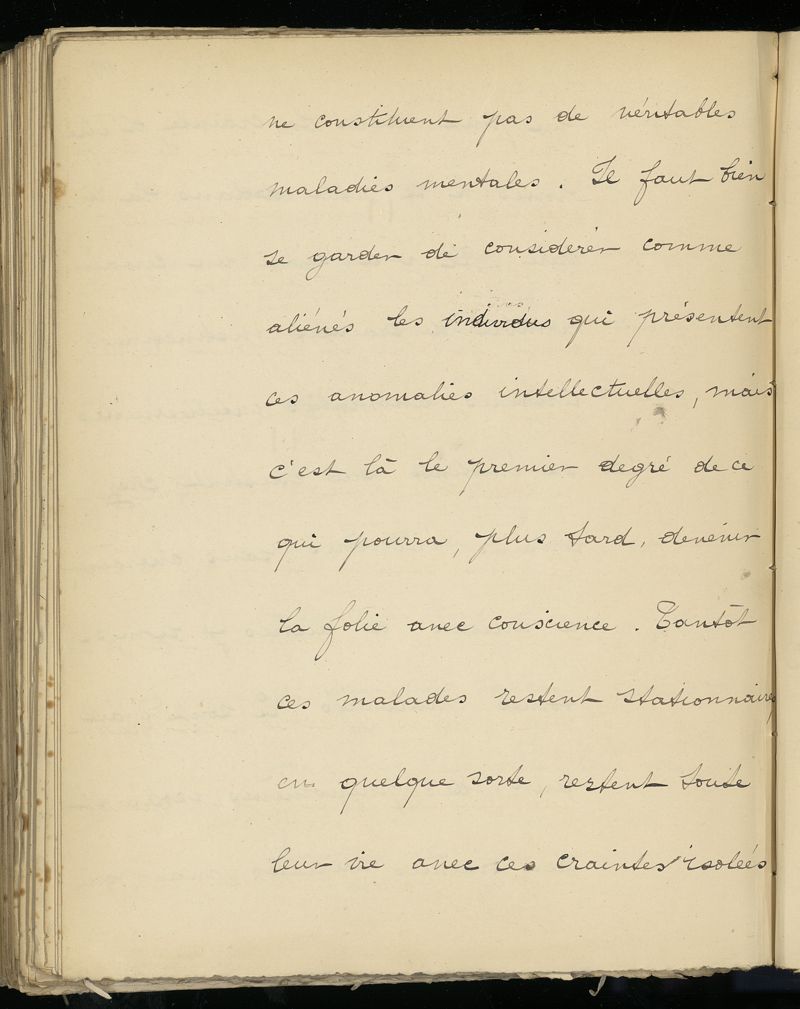 ne constituent pas de véritables
maladies mentales. Il faut bien
se garder de considérer comme
aliénés les individus qui présentent
ces anomalies intellectuelles, mais
c'est là le premier degré de ce
qui pourra, plus tard, devenir
la folie avec conscience. Tantôt
ces malades restent stationnaires
en quelque sorte, restent toute
leur vie avec ces craintes isolées